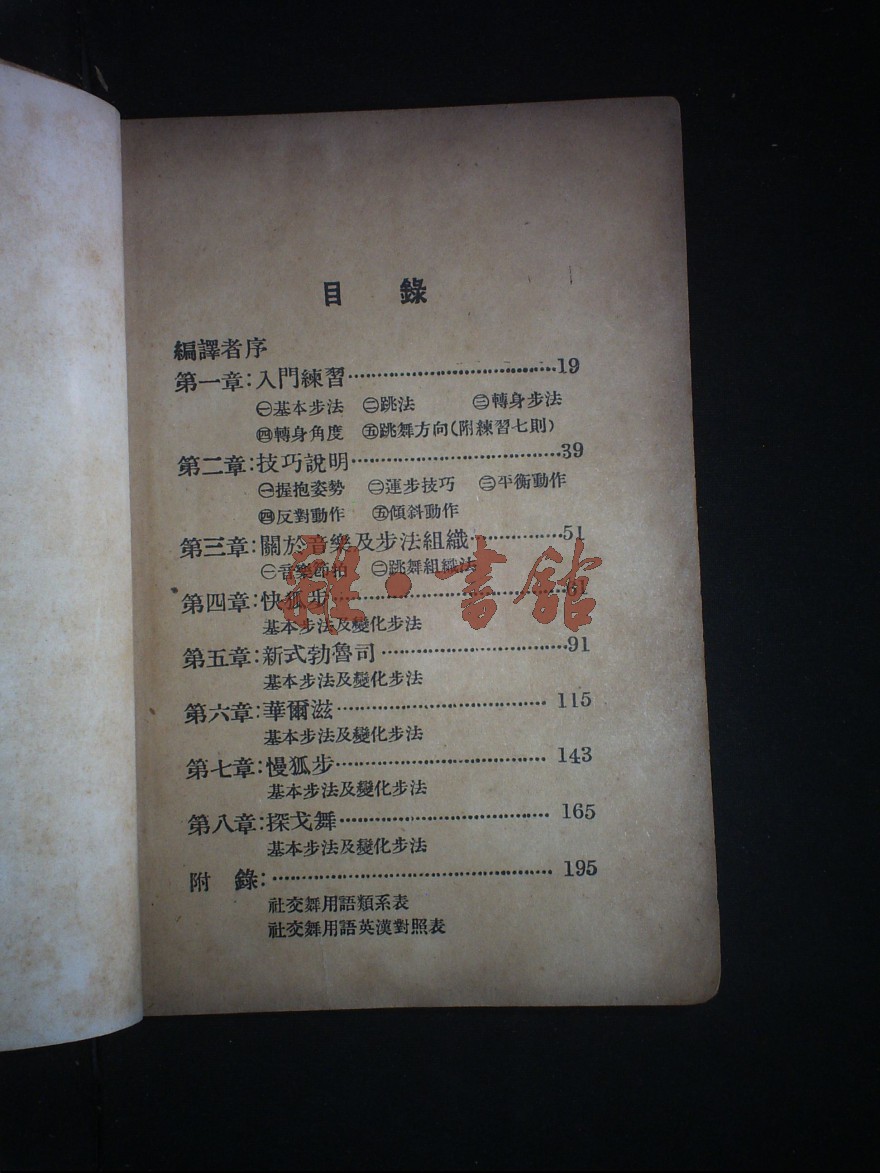 目 錄
編譯者序
第一章:入門練習……………………19
㊀基本步法 ㊁跳法 ㊂轉身步法
㊃轉身角度 ㊄跳舞方向(附練習七則)
第二章:技巧說明……………………39
㊀握抱姿勢 ㊁運步技巧 ㊂平衡動作
㊃反對動作 ㊄傾斜動作
第三章:關於音樂及步法組織……………51
㊀音樂節拍 ㊁跳舞組織法
第四章:快狐步……………………61
基本步法及變化步法
第五章:新式勃魯司……………………91
基本步法及變化步法
第六章:華爾滋……………………115
基本步法及變化步法
第七章:慢狐步……………………143
基本步法及變化步法
第八章:探戈舞……………………165
基本步法及變化步法
附 錄:……………………195
社交舞用語類系表
社交舞用語英漢對照表
雜·書館